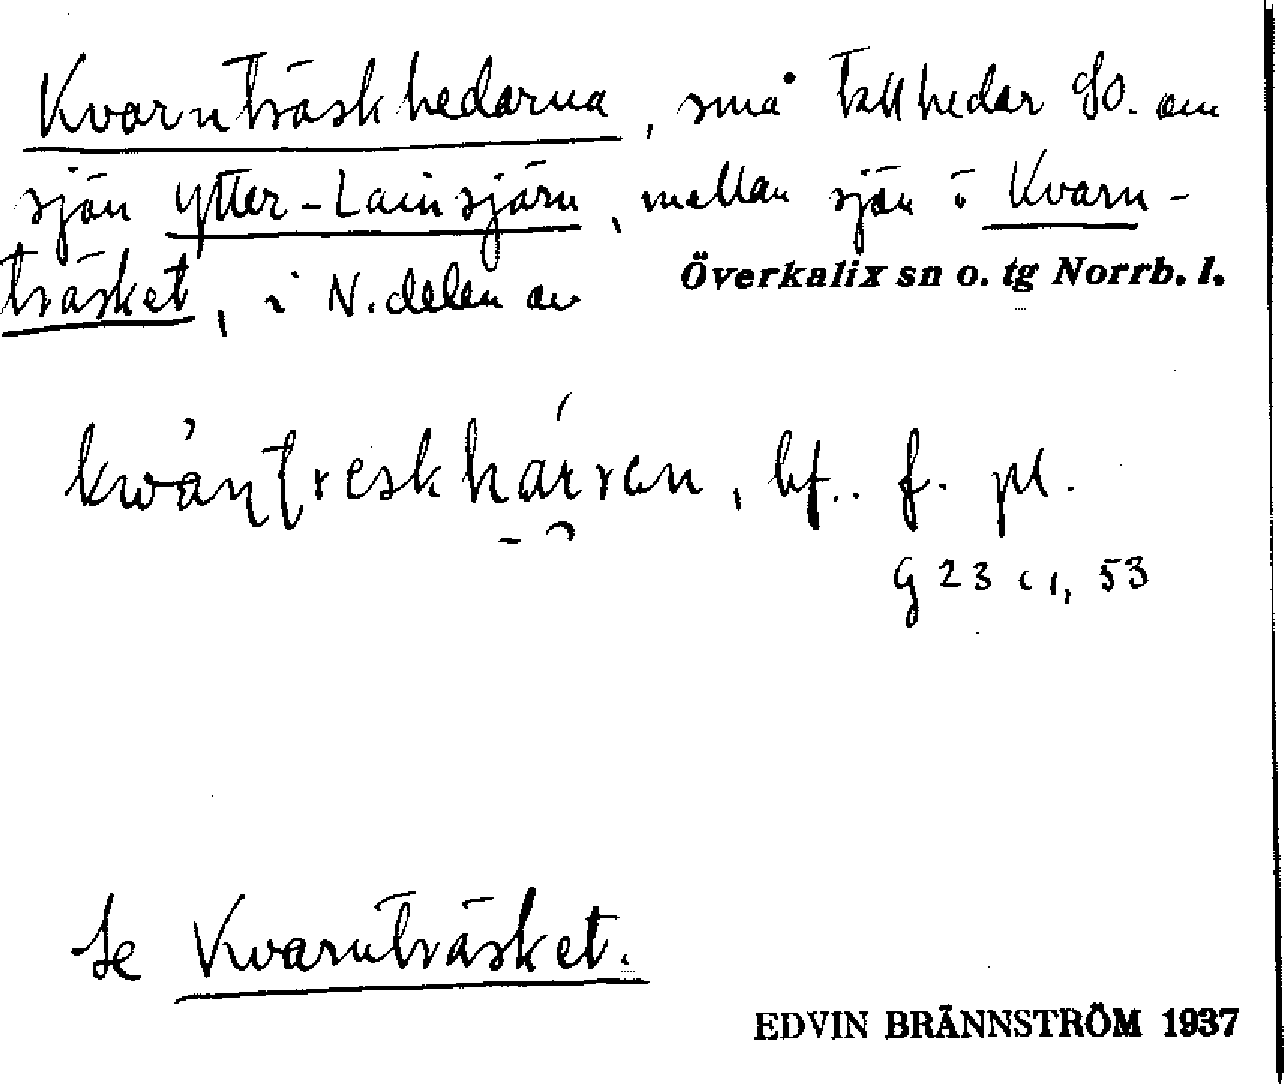 Kvarnträskhedarna, små tallhedar SO. om
sjön Ytter-Lainsjärn, mellan sjön o. Kvarn-
träsket, i N. delen av Överkalix sn o. tg Norrb. l.
bf. f. pl.
G 23 c 1, 53
Se Kvarnträsket.
EDVIN BRÄNNSTRÖM 1937